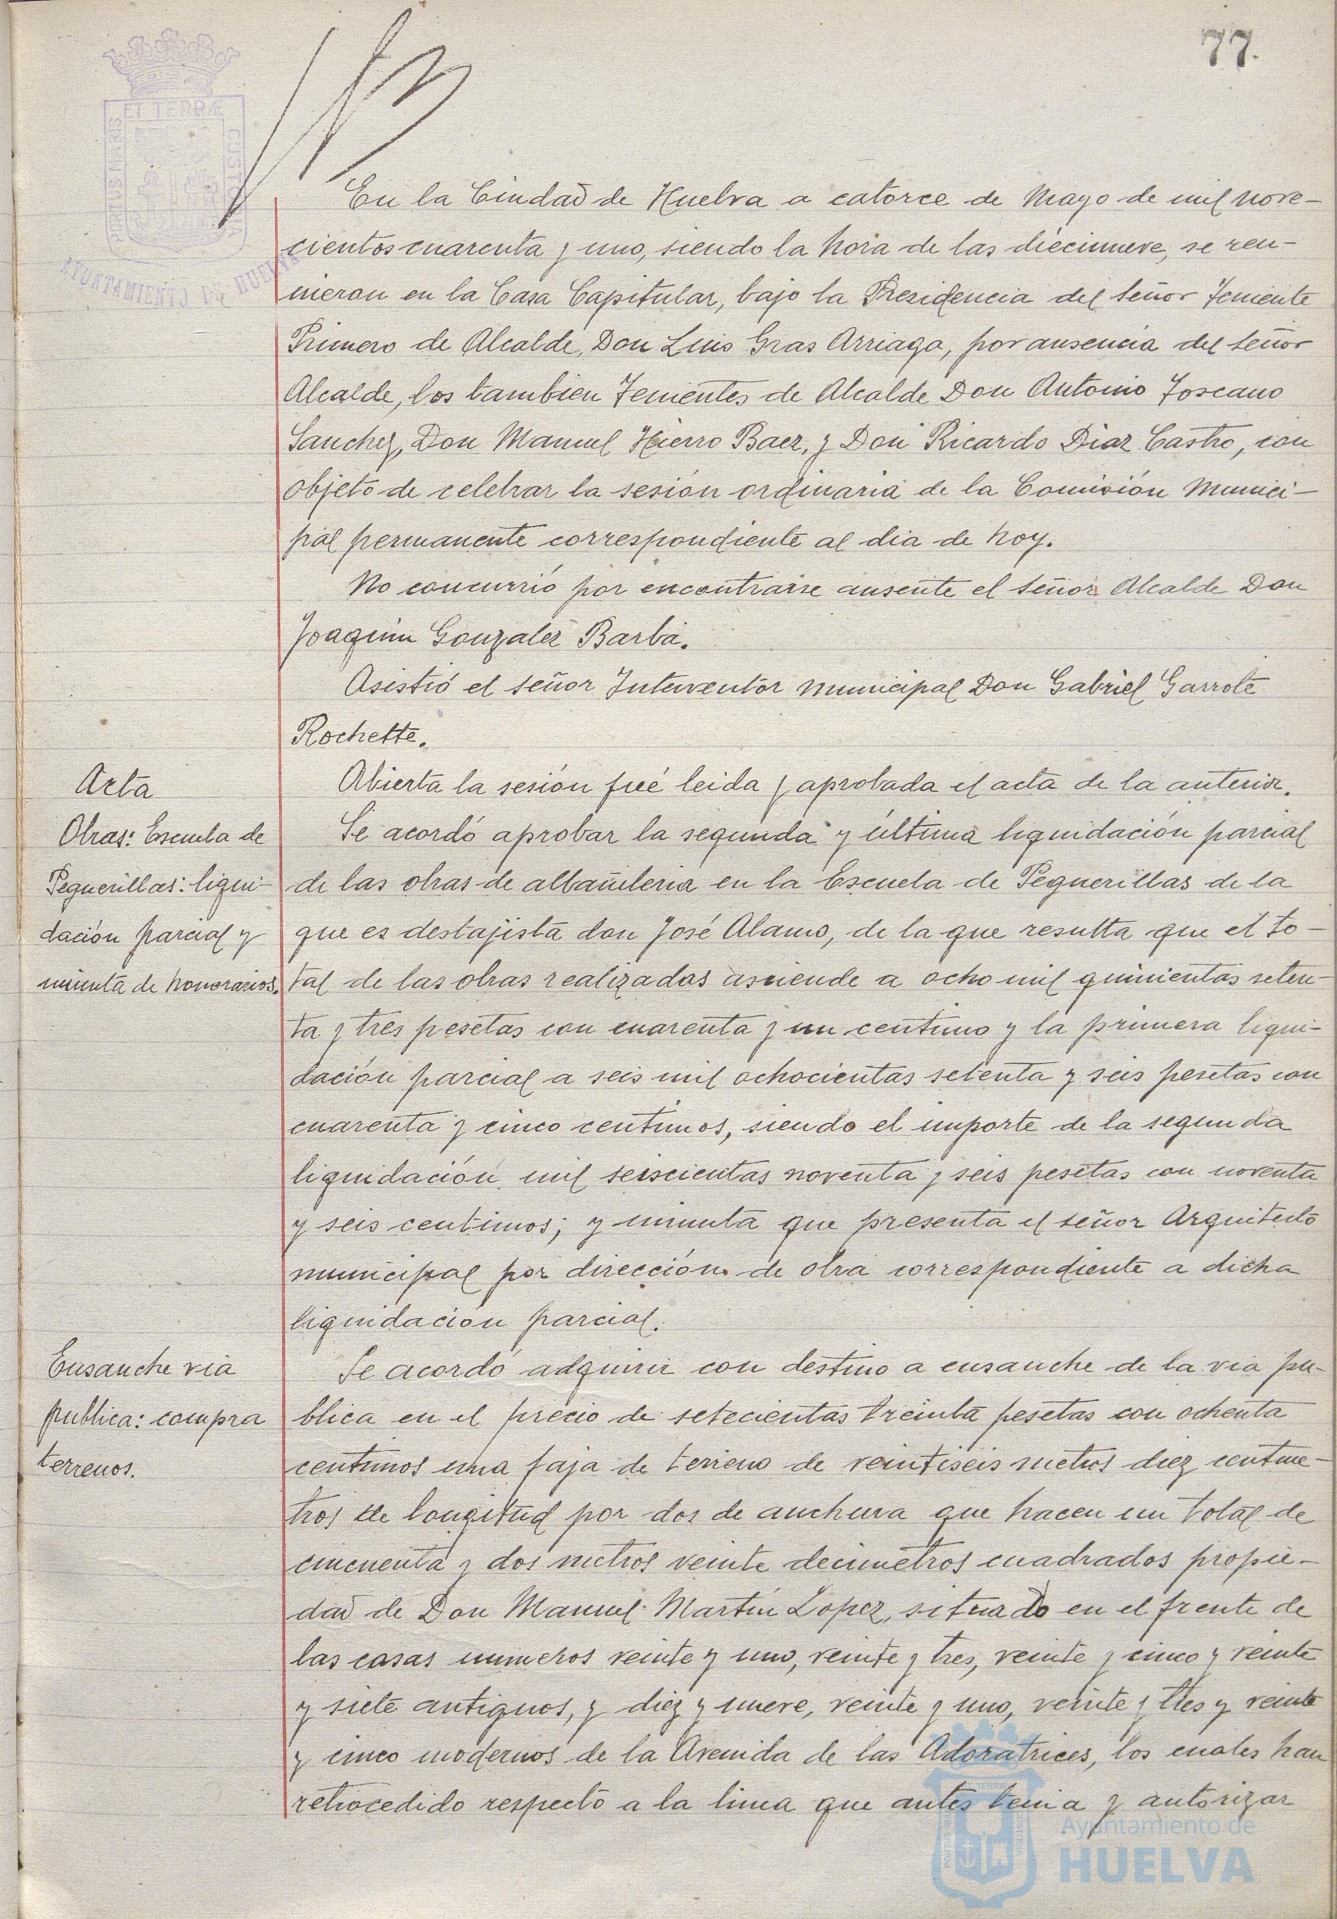 77.
PORTUS MARIS ET TERRÆ CUSTODIA
AYUNTAMIENTO DE HUELVA
En la Ciudad de Huelva a catorce de Mayo de mil nove-
cientos cuarenta y uno, siendo la hora de las diecinueve, se reu-
nieron en la Casa Capitular, bajo la Presidencia del señor Teniente
Primero de Alcalde, Don Luis Gras Arriaga, por ausencia del señor
Alcalde, los tambien Tenientes de Alcalde Don Antonio Toscano
Sanchez, Don Manuel Hierro Baez, y Don Ricardo Diaz Castro, con
objeto de celebrar la sesión ordinaria de la Comisión Munici-
pal permanente correspondiente al dia de hoy.
No concurrió por encontrarse ausente el señor Alcalde Don
Joaquin Gonzalez Barba.
Asistió el señor Interventor municipal Don Gabriel Garrote
Rochette.
Acta
Abierta la sesión fué leida y aprobada el acta de la anterior.
Obras: Escuela de
Peguerillas: liqui-
dación parcial y
minuta de honorarios.
Se acordó aprobar la segunda y última liquidación parcial
de las obras de albañileria en la Escuela de Peguerillas de la
que es destajista don José Alamo, de la que resulta que el to-
tal de las obras realizadas asciende a ocho mil quinientas seten-
ta y tres pesetas con cuarenta y un centimo y la primera liqui-
dación parcial a seis mil ochocientas setenta y seis pesetas con
cuarenta y cinco centimos, siendo el importe de la segunda
liquidación mil seiscientas noventa y seis pesetas con noventa
y seis centimos; y minuta que presenta el señor Arquitecto
municipal por dirección de obra correspondiente a dicha
liquidación parcial.
Ensanche via
publica: compra
terrenos.
Se acordó adquirir con destino a ensanche de la via pu-
blica en el precio de setecientas treinta pesetas con ochenta
centimos una faja de terreno de veintiseis metros diez centime-
tros de longitud por dos de anchura que hacen un total de
cincuenta y dos metros veinte decimetros cuadrados propie-
dad de Don Manuel Martín Lopez, situado en el frente de
las casas numeros veinte y uno, veinte y tres, veinte y cinco y veinte
y siete antiguos, y diez y nueve, veinte y uno, veinte y tres y veinte
y cinco modernos de la Avenida de las Adoratrices, los cuales han
retrocedido respecto a la linea que antes tenia y autorizar
Ayuntamiento de
HUELVA